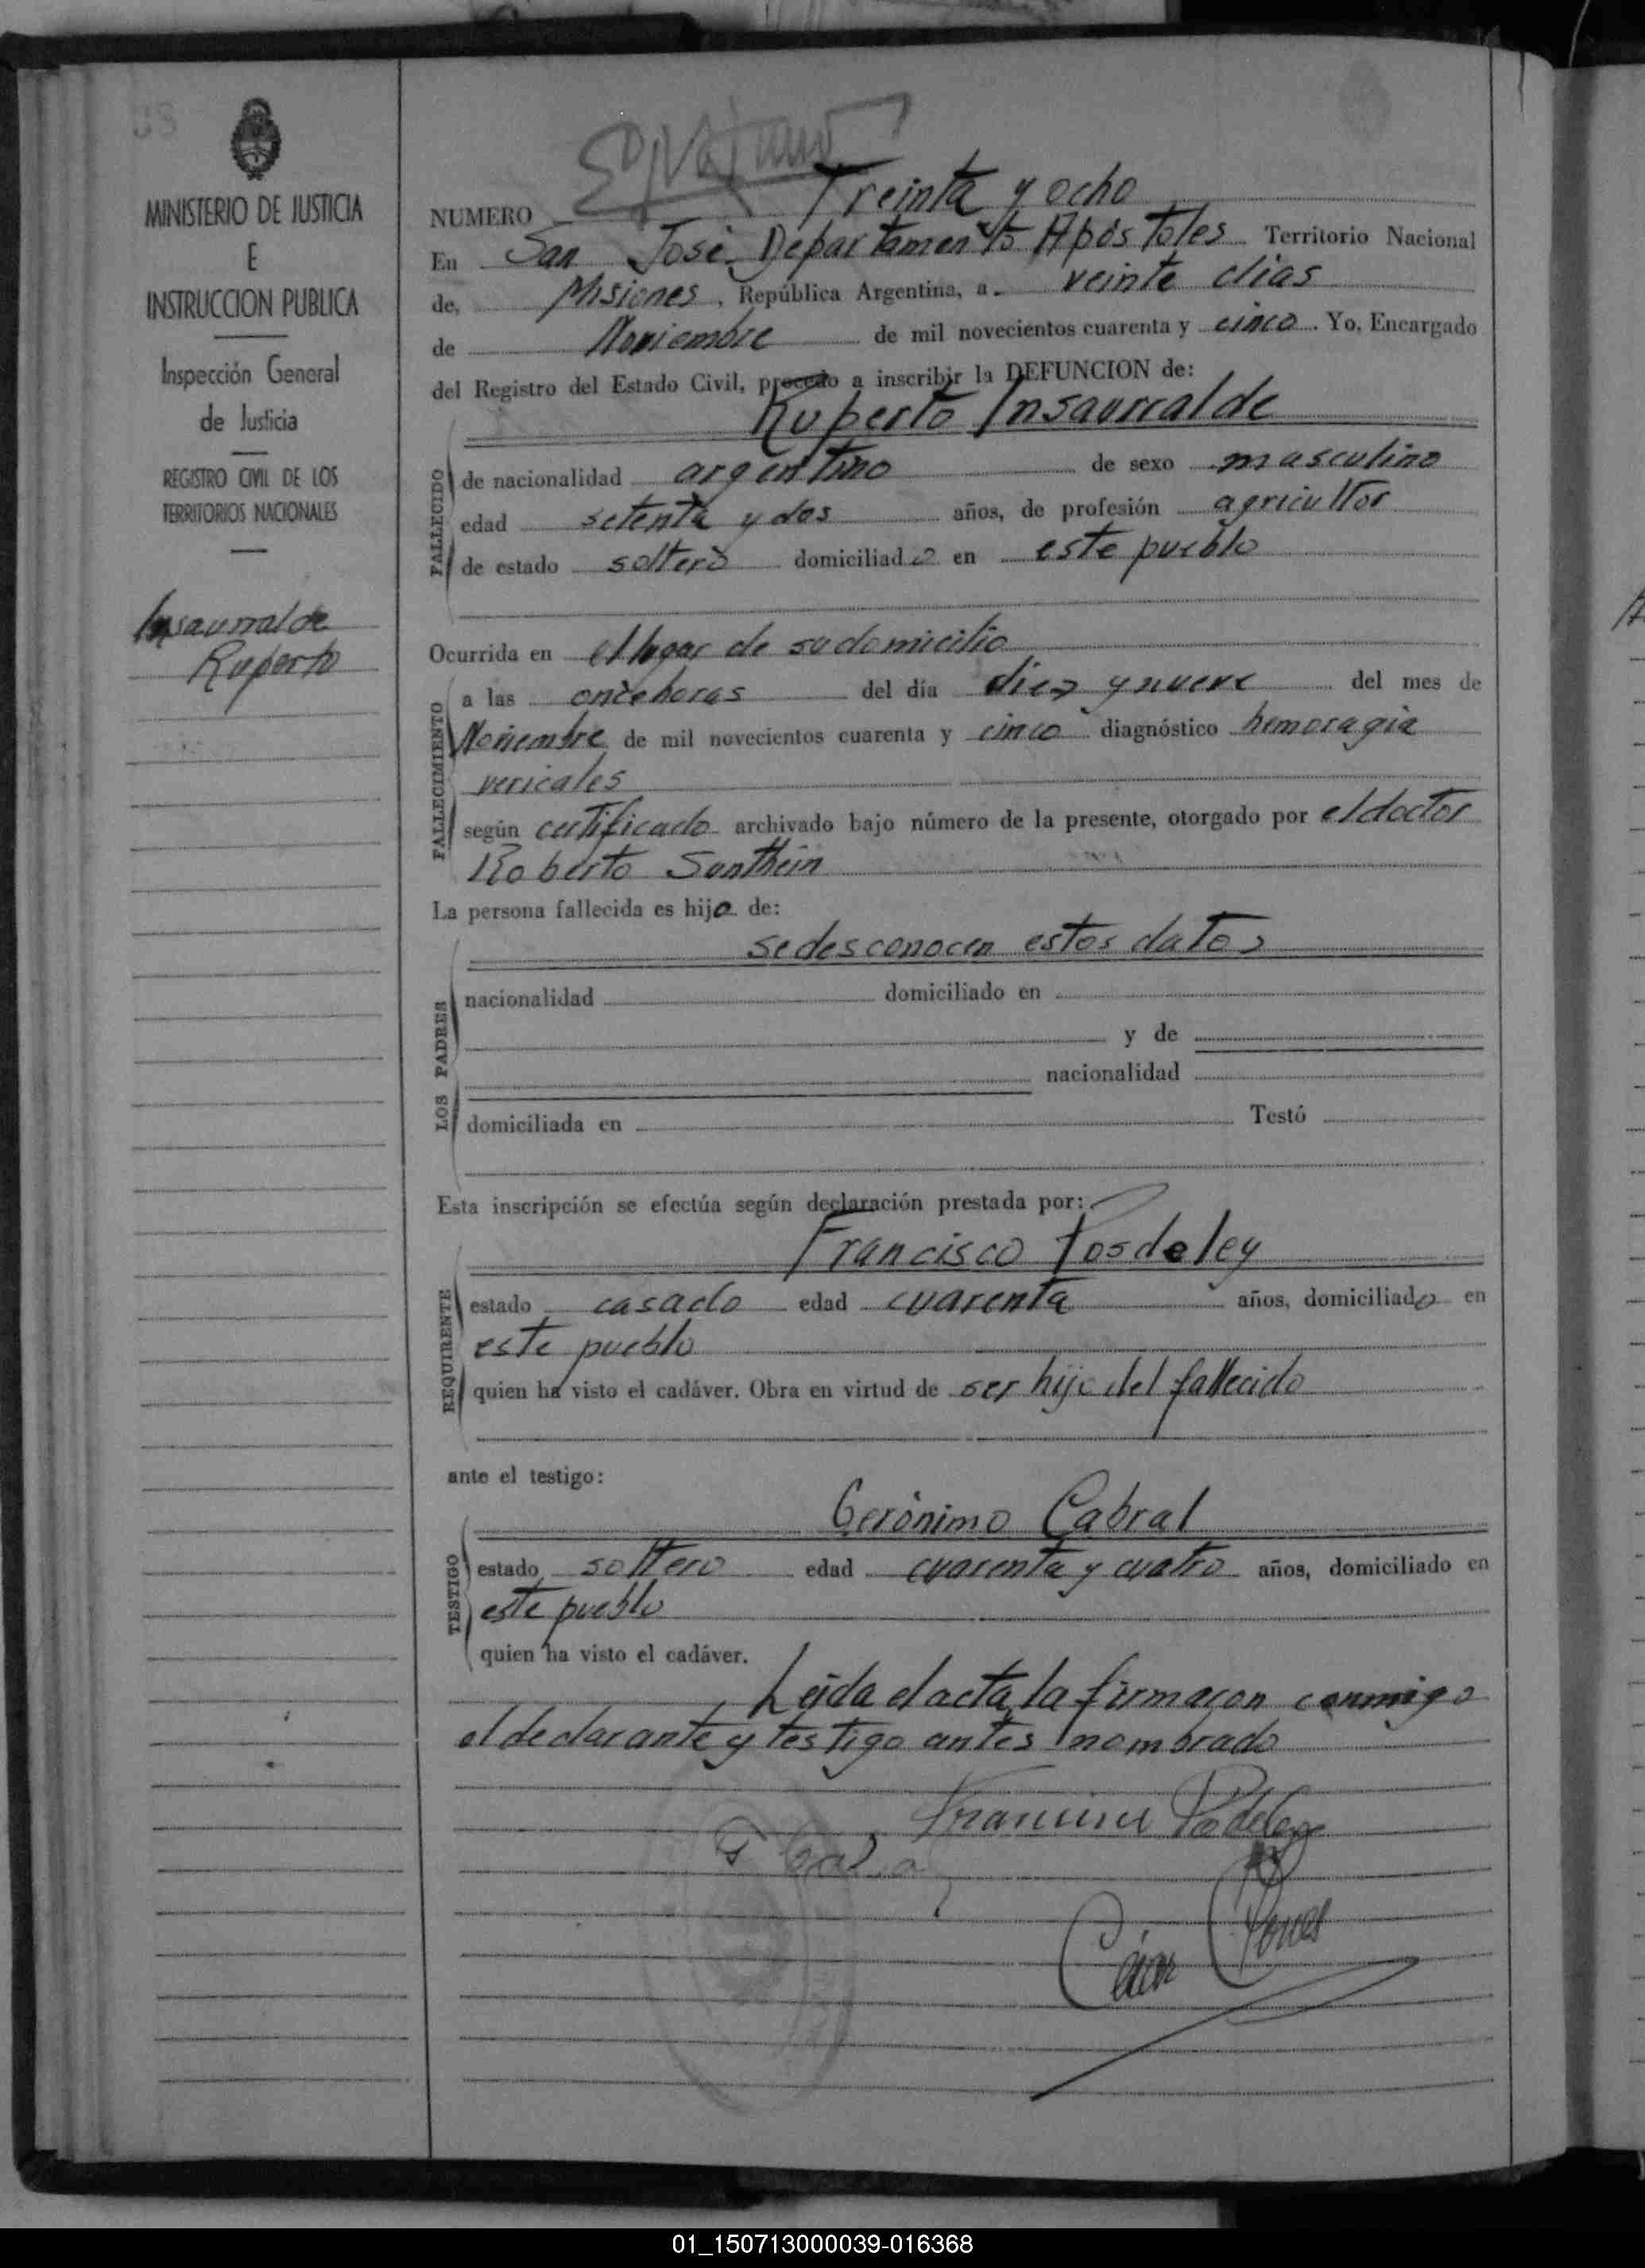 38
MINISTERIO DE JUSTICIA
E
INSTRUCCION PUBLICA
Inspección General
de Justicia
REGISTRO CIVIL DE LOS
TERRITORIOS NACIONALES
Insaurralde
Ruperto
NUMERO Treinta y ocho
En San José Departamento Apóstoles Territorio Nacional
de, Misiones, República Argentina, a veinte dias
de Noviembre de mil novecientos cuarenta y cinco. Yo, Encargado
del Registro del Estado Civil, procedo a inscribir la DEFUNCION de:
Ruperto Insaurralde
FALLECIDO
de nacionalidad argentino de sexo masculino
edad setenta y dos años, de profesión agricultor
de estado soltero domiciliado en este pueblo
Ocurrida en el lugar de su domicilio
FALLECIMIENTO
a las once horas del día diez y nueve del mes de
Noviembre de mil novecientos cuarenta y cinco diagnóstico hemoragia
vericales
según certificado archivado bajo número de la presente, otorgado por el doctor
Roberto
La persona fallecida es hijo de:
se desconocen estos datos
LOS PADRES
nacionalidad domiciliado en
y de
nacionalidad
domiciliada en Testó
Esta inscripción se efectúa según declaración prestada por:
Francisco Posdeley
REQUIRENTE
estado casado edad cuarenta años, domiciliado en
este pueblo
quien ha visto el cadáver. Obra en virtud de ser hijo del fallecido
ante el testigo:
Gerónimo Cabral
TESTIGO
estado soltero edad cuarenta y cuatro años, domiciliado en
este pueblo
quien ha visto el cadáver.
Leida el acta, la firmaron conmigo
el declarante y testigo antes nombrado
01_150713000039-016368